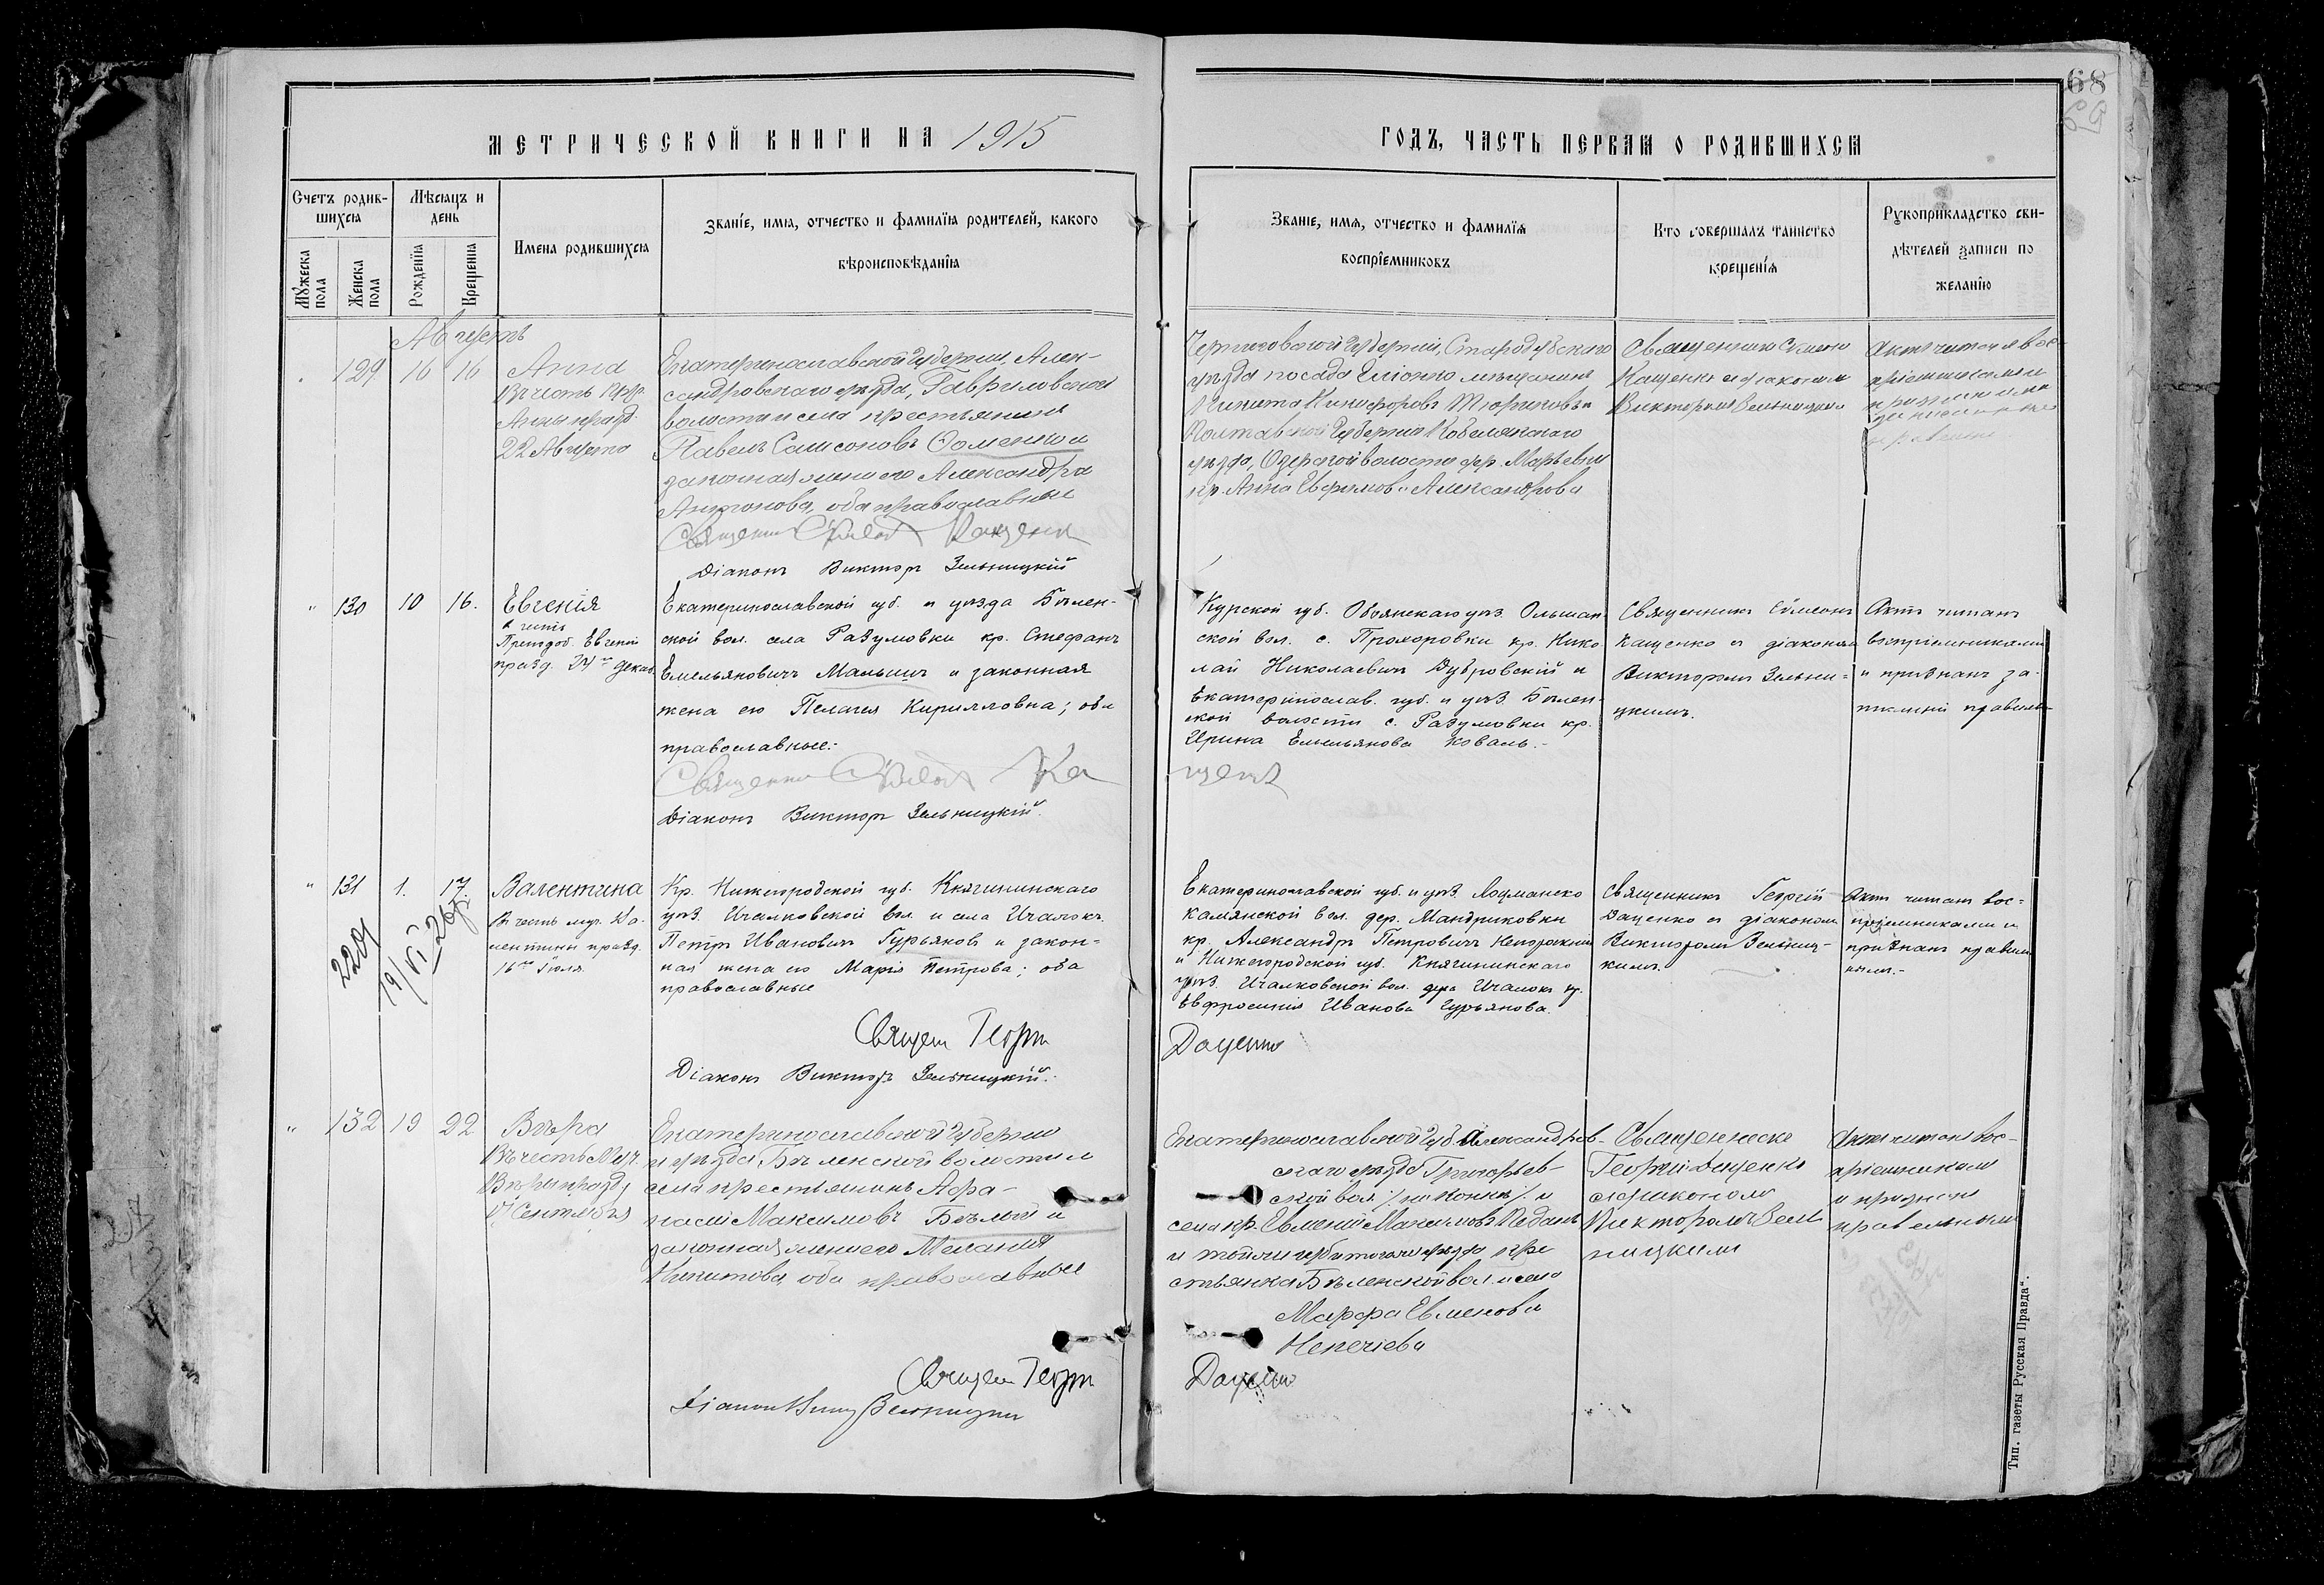 68
МЕТРИЧЕСКОЙ КНИГИ НА 1915
ГОДЪ, ЧАСТЬ ПЕРВАЯ О РОДИВШИХСЯ
Счетъ родив-
шихся
Мужеска пола
Женска пола
Мѣсяцъ и
день
Рожденія
Крещенія
Имена родившихся
Званіе, имя, отчество и фамилія родителей, какого
вѣроисповѣданія
Званіе, имя, отчество и фамилія
воспріемниковъ
Кто совершалъ таинство
крещенія
Рукоприкладство сви-
дѣтелей записи по
желанію
Августъ
129 16 16
Анна
Въ честь
Анны празд.
22 Августа
Екатеринославской губерніи, Алек-
сандровскаго уѣзда, Гавриловской
волости и села крестьянинъ
Павелъ Самсоновъ Фоменко и
законная жена его Александра
Антонова, оба православные
Священникъ Симеонъ Кащенко
Діаконъ Викторъ Зельницкій
Черниговской губерніи, Стародубскаго
уѣзда посада мѣщанинъ
Никита Никифоровъ и
Полтавской губерніи Кобелякскаго
уѣзда, волости дер. Марьевки
кр. Анна Ефимова Александрова
Священникъ Симеонъ
Кащенко и діаконъ
Викторъ Зельницкій
Актъ читанъ вос-
пріемниками
" 130 10 16.
Евгенія
в честь
Преподоб. Евгеніи
празд. 24го декаб.
Екатеринославской губ. и уѣзда Бѣлен-
ской вол. села Разумовки кр. Стефанъ
Емельяновичъ Малышъ и законная
жена его Пелагея Кирилловна; оба
православные.-
Священникъ Симеонъ Ка
щенко
Діаконъ Викторъ Зельницкій.
Курской губ. Обоянскаго уѣз. Ольшан-
ской вол. с. Прохоровки кр. Нико
лай Николаевичъ Дубровскій и
Екатеринослав. губ. и уѣз. Бѣлен-
ской волости с. Разумовки кр.
Ирина Емельянова Коваль.-
Священникъ Симеонъ
Кащенко и діаконъ
Викторомъ Зельни-
цкимъ.
Актъ читанъ
воспріемниками
и признанъ за-
писаннымъ правильно
" 131 1. 17.
2201
19/VI 26
Валентина
Въ честь муч. Ва-
лентины празд.
16го Іюля.
Кр. Нижегородской губ. Княгининскаго
уѣз. Ичалковской вол. и села Ичалокъ
Петръ Ивановичъ Гурьяновъ и закон-
ная жена его Марія Петрова; оба
православные
Священ Георгій
Даценко
Діаконъ Викторъ Зельницкій.
Екатеринославской губ. и уѣз. Лоцманско
Камянской вол. дер. Мандриковки
кр. Александръ Петровичъ
и Нижегородской губ. Княгининскаго
уѣз. Ичалковской вол. села Ичалокъ кр.
Евфросинія Иванова Гурьянова.
Священникъ Георгій
Даценко и діаконом
Викторомъ Зельниц-
кимъ.
Актъ читанъ вос-
пріемниками и
признанъ правиль
нымъ.-
" 132 19 22
Вѣра
Въ честь Муч.
Вѣры празд.
17 Сентября
Екатеринославской губерніи
и уѣзда Бѣленской волости и
села крестьянинъ Афа-
насій Максимовъ Бѣлый и
законная жена его Меланія
Никитова оба православные
Священ Георгій
Даценко
Діаконъ Викт Зельницкій
Екатеринославской губ. Александров-
скаго уѣзда Григорьев-
ской вол. и
села кр. Евменій Максимовъ
и той же губ. и того же уѣзда кре
стьянка Бѣленской вол. и села
Марфа Евменова
Священникъ
Георгій Даценко
съ діакономъ
Викторомъ Зель
ницкимъ
Актъ читанъ вос-
пріемниками
и признанъ
правильнымъ
Тип. газеты Русская Правда".